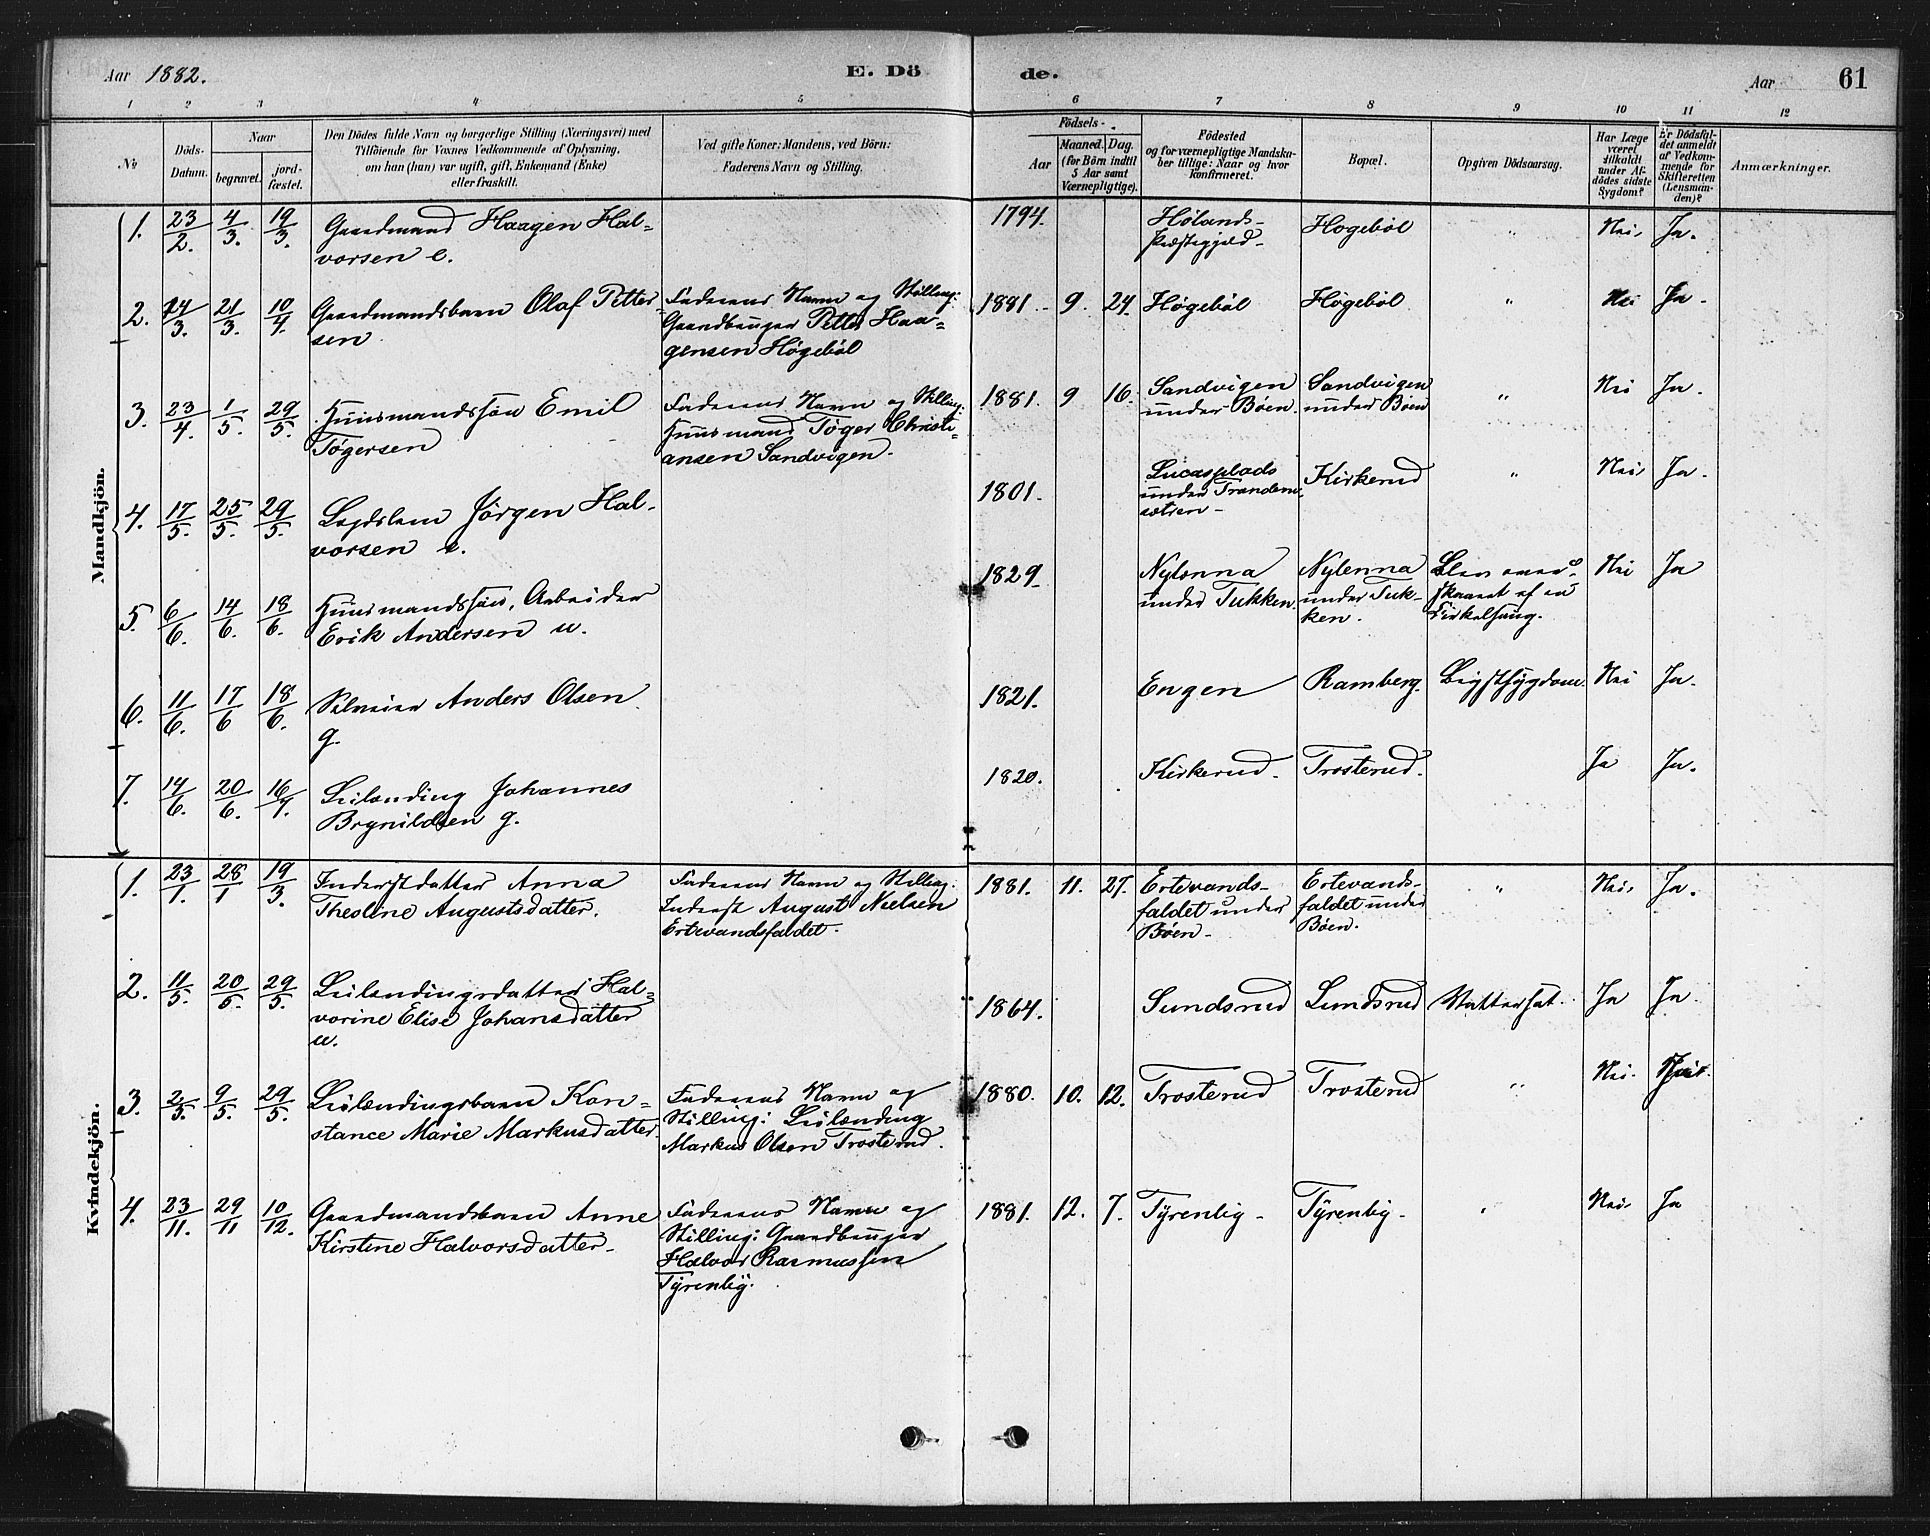 Aar 1882.
E. Dö
de.
Aar
61
1 2 3 4 5 6 7 8 9 10 11 12
No
Döds-
Datum.
Naar
begravet.
jord-
fæstet.
Den Dödes fulde Navn og borgerlige Stilling (Næringsvei) med
Tilföiende for Voxnes Vedkommende af Oplysning,
om han (hun) var ugift, gift, Enkemand (Enke)
eller fraskilt.
Ved gifte Koner: Mandens, ved Börn:
Faderens Navn og Stilling.
Födsels-
Aar
Maaned.
Dag.
(for Börn indtil
5 Aar samt
Værnepligtige).
Födested
og for værnepligtige Mandska-
ber tillige: Naar og hvor
konfirmeret.
Bopæl.
Opgiven Dödsaarsag.
Har Læge
været
tilkaldt
under Af-
dödes sidste
Sygdom?
Er Dödsfal-
det anmeldt
af Vedkom-
mende for
Skifteretten
(Lensman-
den)?
Anmærkninger.
Mandkjön.
1. 23/2. 4/3. 19/3. Gaardmand Haagen Hal-
vorsen e.
1794. Hølands-
Præstegjæld- Hogebøl " Nei. Ja.
2. 14/3. 21/3. 10/4. Gaardmandsbarn Olaf Petter-
sen
Faderens Navn og Stilling:
Gaardbruger Petter Haa-
gensen Høgebøl
1881. 9. 24. Høgebøl Høgebøl " Nei Ja.
3. 23/4. 1/5. 29/5. Huusmandssøn Emil
Tøgersen
Faderens Navn og Stilling:
Huusmand Tøger Christi-
ansen Sandvigen.
1881. 9 16. Sandvigen
under Bøen. Sandvigen
under Bøen " Nei Ja.
4. 17/5. 25/5. 29/5. Lægdslem Jørgen Hal-
vorsen e.
1801. Lucasplads
under
Kirkerud " Nei. Ja.
5. 6/6. 14/6. 18/6. Huusmandssøn, Arbeider
Erik Andersen u.
1829. Nylænna
under Tukken. Nylenna
under Tuk-
ken.
af en
Cirkelsaug. Nei Ja
6. 11/6. 17/6 18/6. Selveier Anders Olsen
g.
1821. Engen Ramberg. Brystsygdom. Nei Ja.
7. 14/6. 20/6. 16/9. Leilænding Johannes
Brynildsen g.
1820. Kirkerud. Trosterud. Ja Ja.
Kvindekjön.
1. 23/1. 28/1 19/3. Inderstdatter Anna
Theoline Augustsdatter.
Faderens Navn og Stilling:
Inderst August Nielsen
Ertevandsfaldet.
1881. 11. 27. Ertevands-
faldet under
Bøen- Ertevands-
faldet under
Bøen. " Nei. Ja.
2. 11/5. 20/5. 29/5. Leilændingsdatter Hal-
vorine Elise Johansdatter
u.
1864. Sundsrud Lundsrud Ja Ja.
3. 2/5. 9/5. 29/5. Leilændingsbarn Kon-
stance Marie Markusdatter.
Faderens Navn og
Stilling: Leilænding
Markus Olsen Trosterud.
1880. 10. 12. Trosterud Trosterud " Nei.
4. 23/11. 29/11 10/12. Gaardmandsbarn Anne
Kirstine Halvorsdatter.
Faderens Navn og
Stilling: Gaardbruger
Halvor Rasmussen
Tyrenby.
1881. 12. 7. Tyrenby- Tyrenby- " Nei. Ja